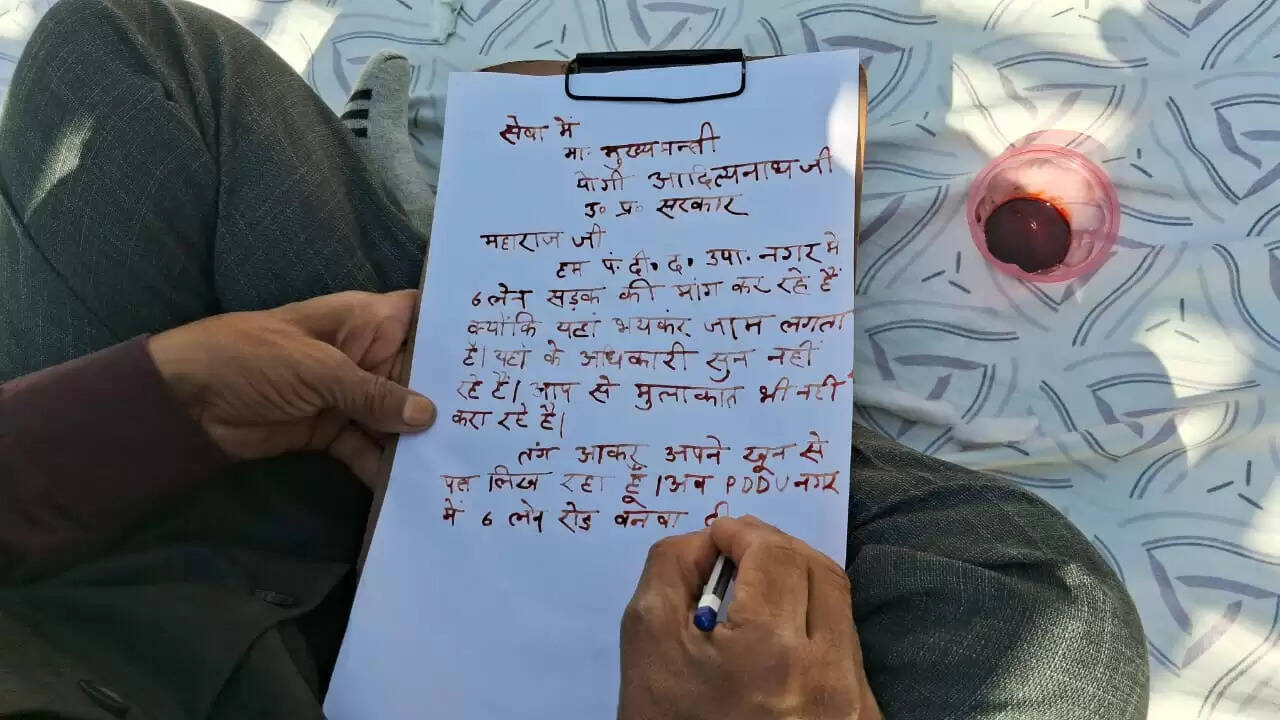 सेवा में
मा. मुख्यमन्त्री
योगी आदित्यनाथ जी
उ० प्र० सरकार
महाराज जी
हम पं. दी. द. उपा. नगर मे
6 लेन सड़क की मांग कर रहे हैं
क्योंकि यहां भयकंर जाम लगता
है। यहां के अधिकारी सुन नहीं
रहे हैं। आप से मुलाकात भी नहीं
करा रहे है।
तंग आकर अपने खून से
पत्र लिख रहा हूँ। अब PDDU नगर
में 6 लेन रोड बनवा दी